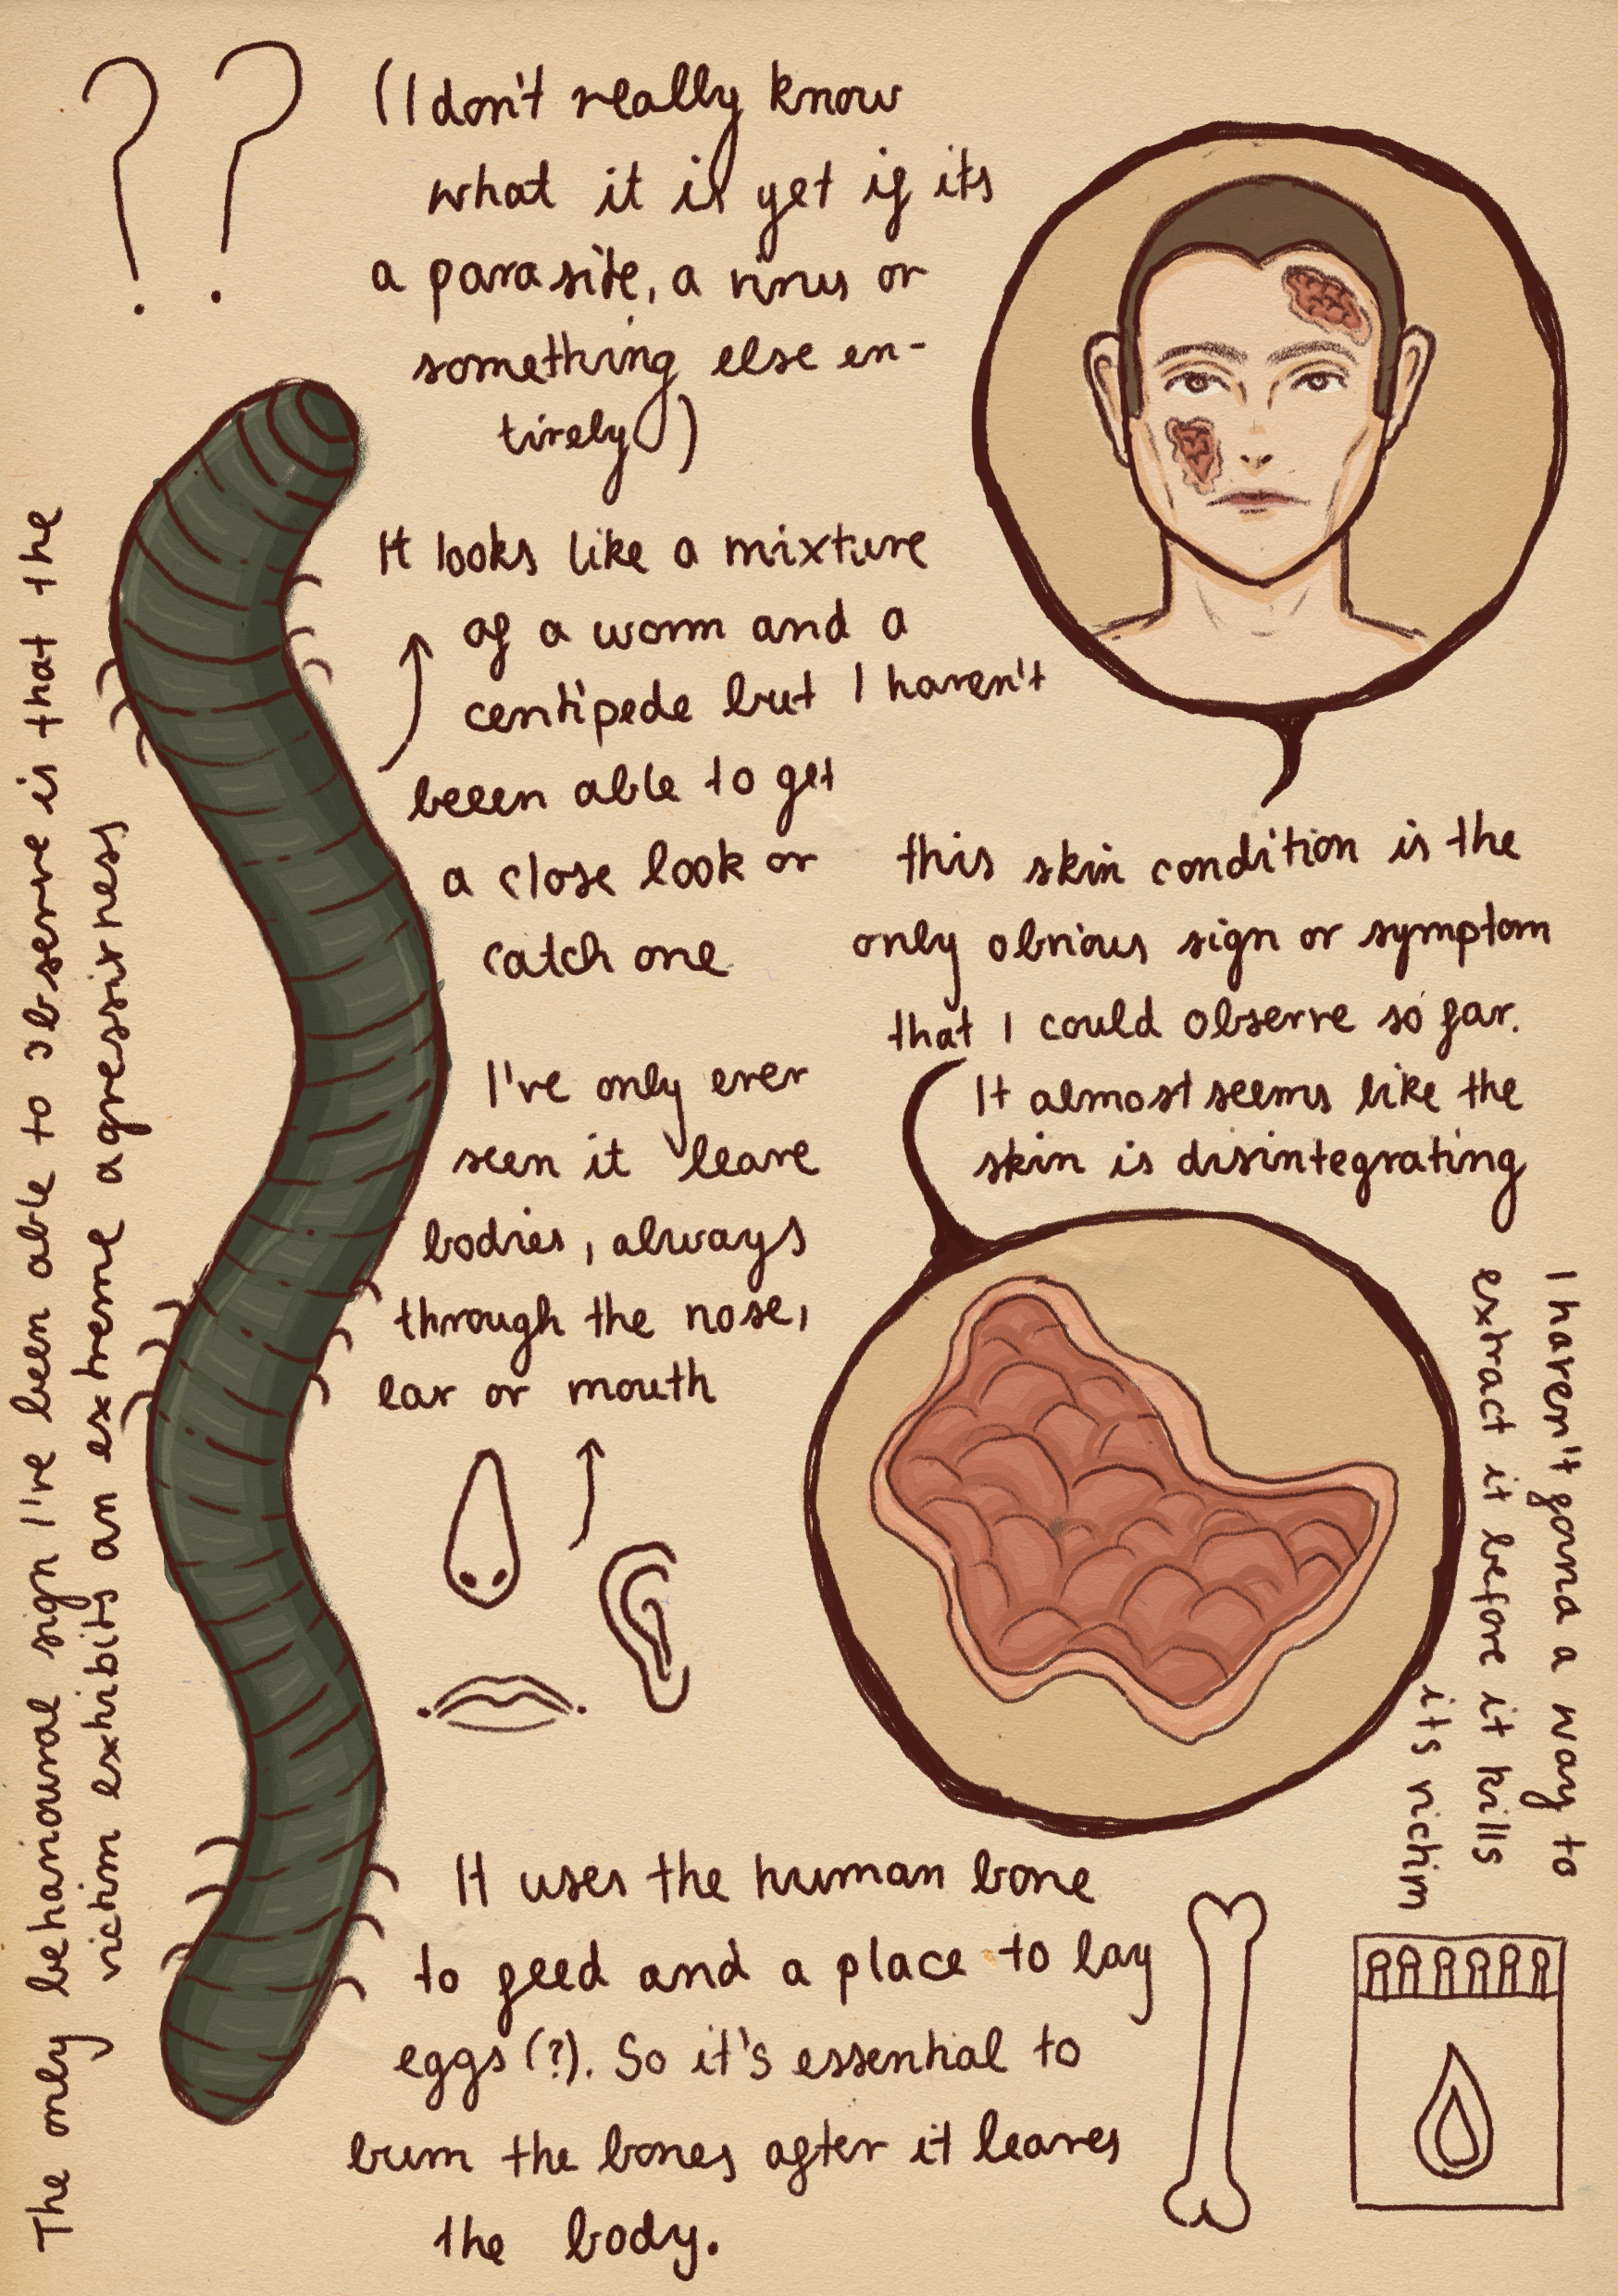 ? ?
(I don't really know
what it is yet if its
a parasite, a virus or
something else en-
tirely)
It looks like a mixture
of a worm and a
centipede but I haven't
beeen able to get
a close look or
catch one
I've only ever
seen it leave
bodies, always
through the nose,
ear or mouth
this skin condition is the
only obvious sign or symptom
that I could observe so far.
It almost seems like the
skin is disintegrating
I haven't gonna a way to
extract it before it kills
its victim
It uses the human bone
to feed and a place to lay
eggs (?). So it's essential to
burn the bones after it leaves
the body.
The only behavioural sign I've been able to observe is that the
victim exhibits an extreme agressivness